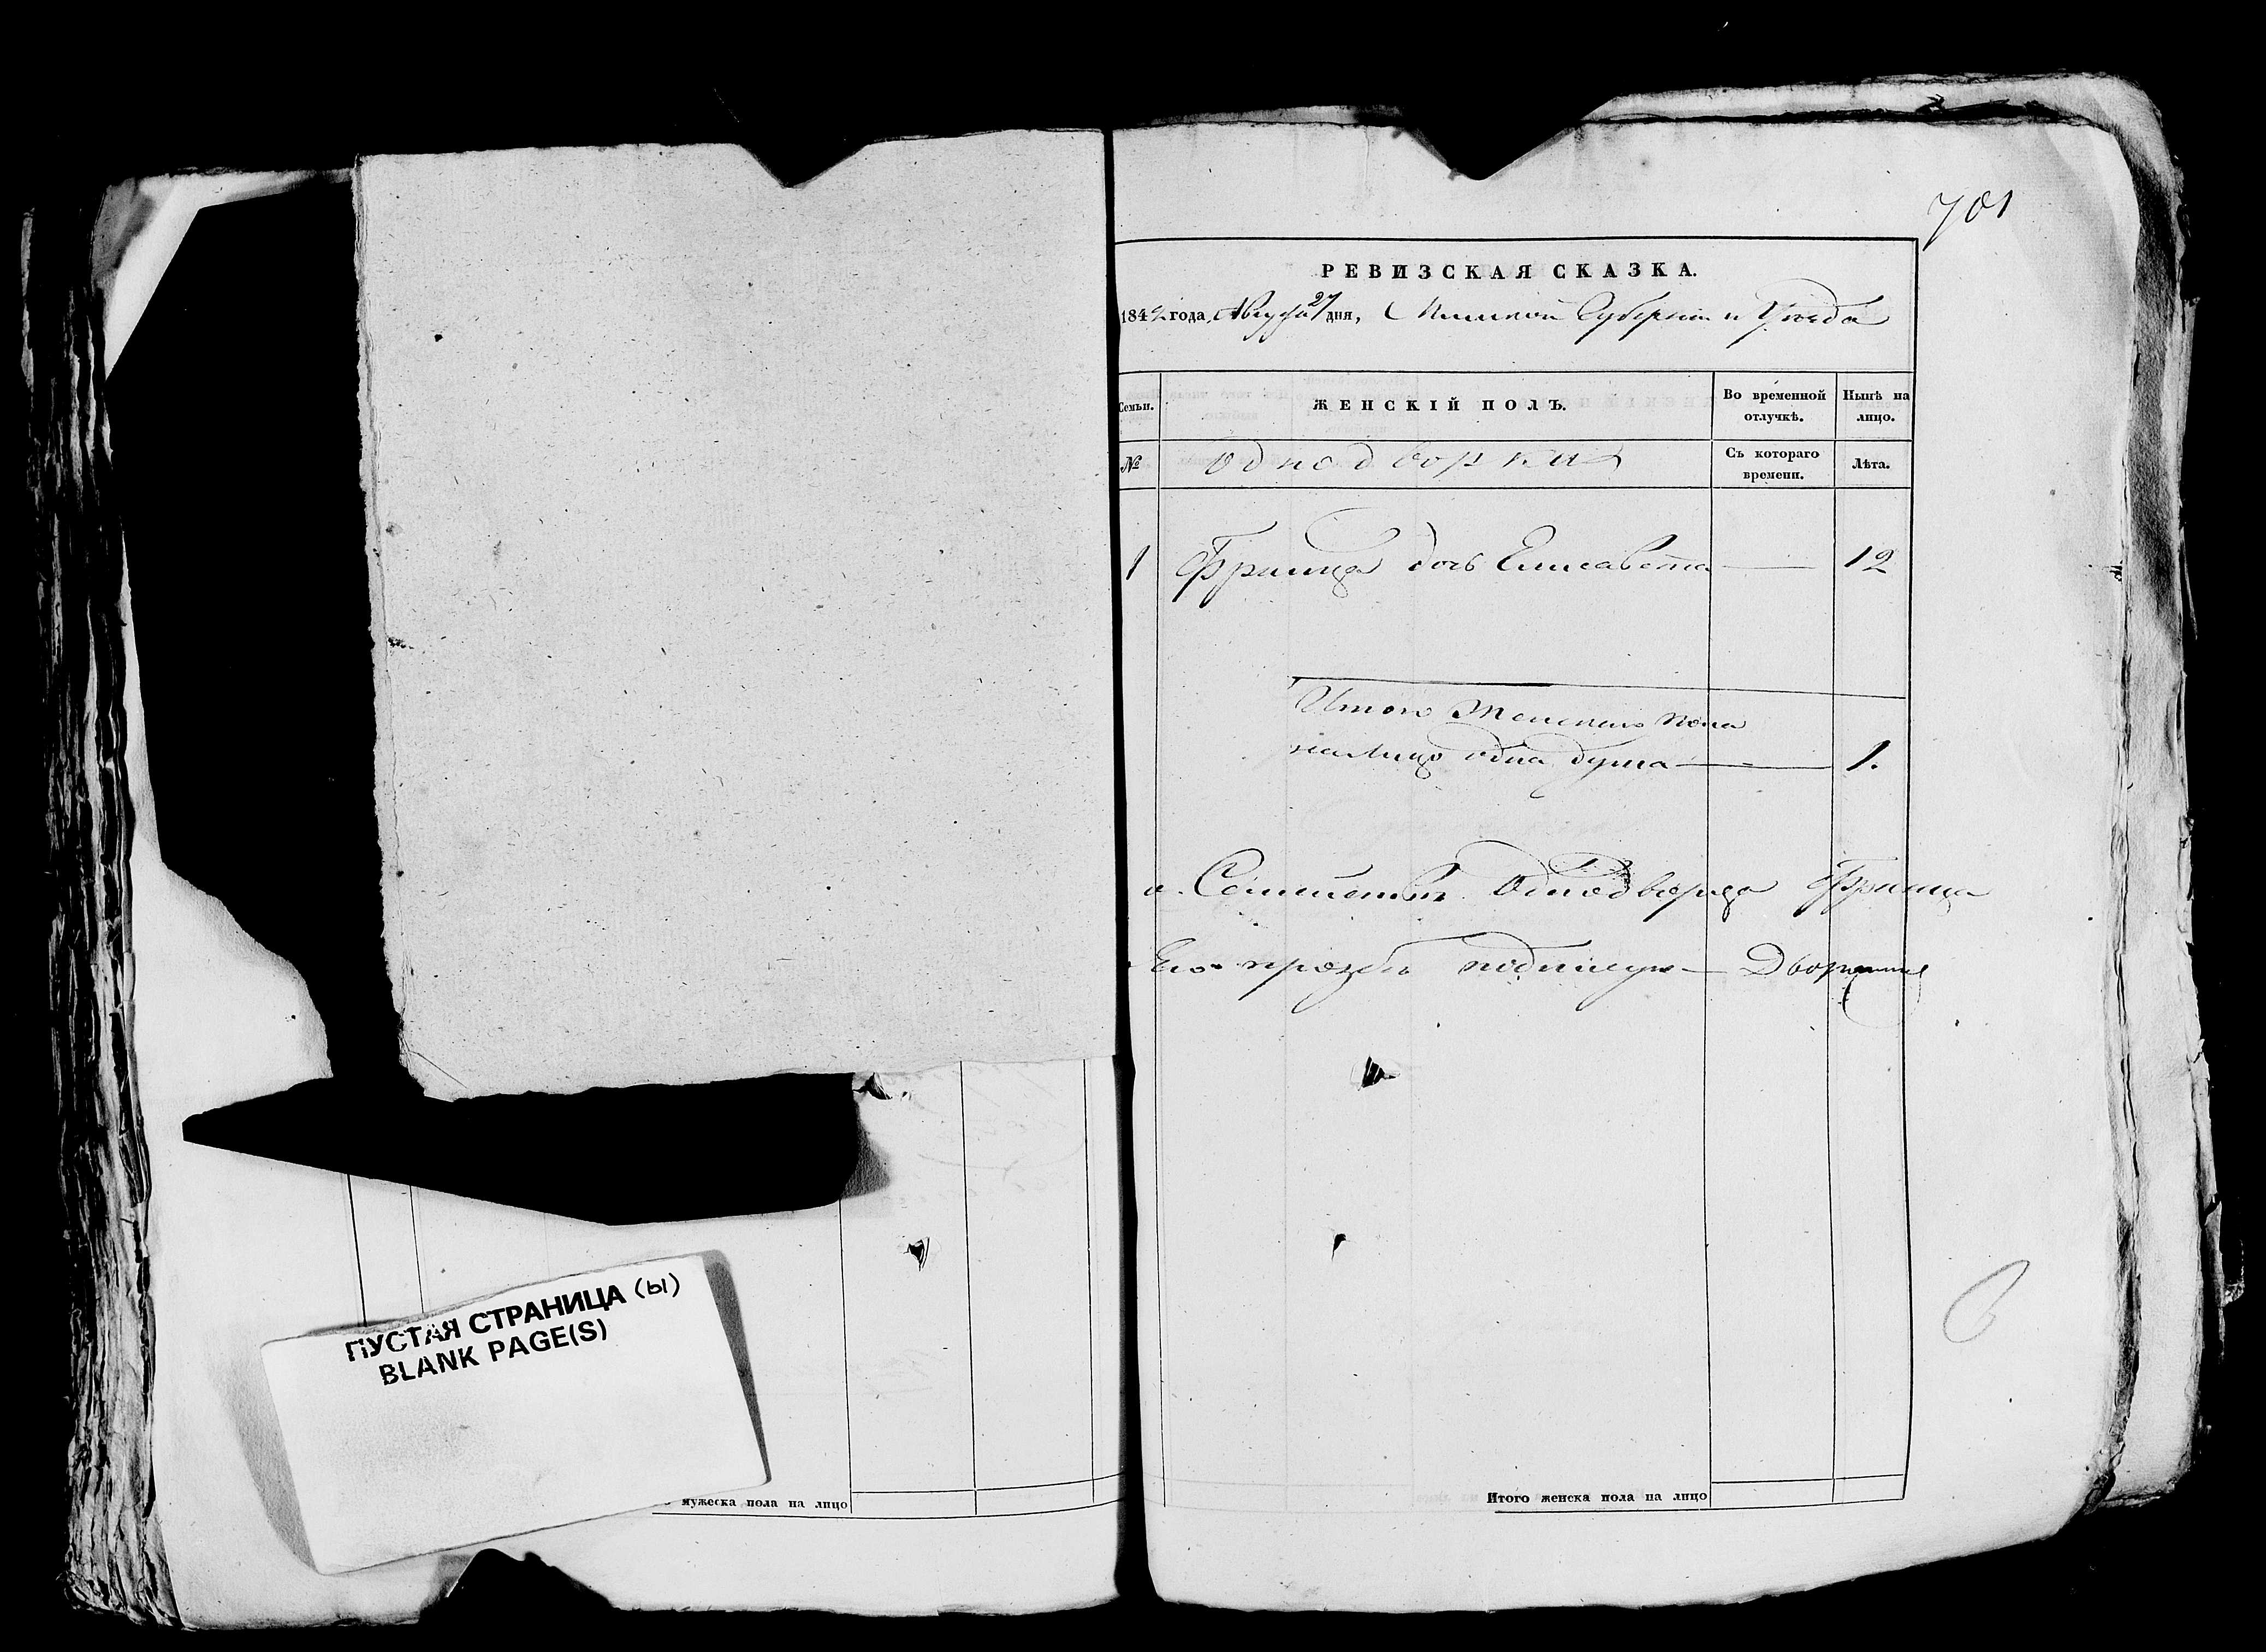 701
РЕВИЗСКАЯ СКАЗКА.
1842 года, Августа 27 дня, Минской Губернии и Уезда
Семьи. ЖЕНСКІЙ ПОЛЪ. Во временной отлучкѣ. Нынѣ на лицо.
№ Однодворки Съ котораго времени. Лѣта.
1 Франца дочь Елисавета — 12
Итого Женскаго пола
на лицо одна душа — 1.
Однодворца Франца
Его прозбѣ подписую — Дворянинъ
6
ПУСТАЯ СТРАНИЦА (Ы)
BLANK PAGE(S)
мужеска пола на лицо
Итого женска пола на лицо